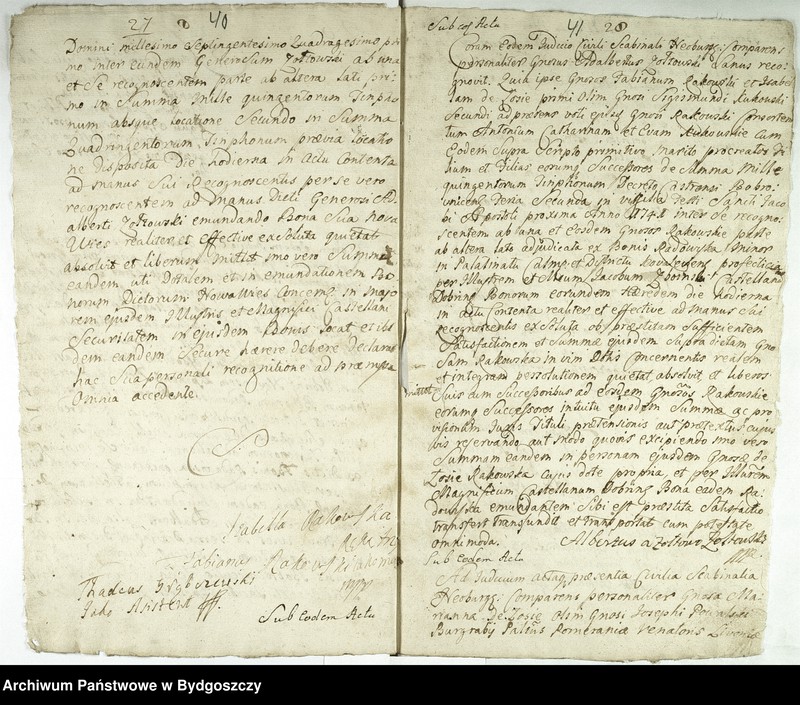 27 40
Domini millesimo Septingentesimo Quadragesimo pri
mo inter eundem Generosum Zołtowski ab una
et Se recognoscentem parte ab altera lati pri
mo in Summa Mille quingentorum Tinpho
num absque locatione Secundo in Summa
Quadringentorum Tinphonum prævia locatio
ne disposita die hodierna in Actu Contenta
ad manus Sui Recognoscentis per se vero
recognoscentem ad Manus Dicti Generosi Ad
alberti Zołtowski emundando Bona Sua
realiter et effective exsoluta quietat
absolvit et liberum mittit imo vero Summam
eandem uti Dotalem et in emundationem Bo
norum Dictorum in majo
rem ejusdem Illustris et Magnifici Castellani
Securitatem in ejusdem Bonis locat et ibi
dem eandem Secure hærere debere declarat
hac Sua personali recognitione ad præmissa
Omnia accedente.
Isabella Rakowska
Fabianus Rakowski
Thadeus
Jako Asistent
Sub Eodem Actu
41 28
Sub eod Actu
Coram Eodem Judicio Civili Scabinali Neoburg: Comparens
personaliter Gnosus Adalbertus Zołtowski Sanus reco
gnovit. Quia ipse Gnosos Fabianum Rakowski et Isabel
lam de Zosie primi Olim Gnosi Sigismundi Kukowski
Secundi ad præsens voti ejusd Gnosi Rakowski Consortem
tum Antonium Catharinam et Evam Kukowskie cum
Eodem Supra Scripto primitivo Marito procreatos Fi
lium et Filias eorumq Successores de Summa Mille
quingentorum Tinphonum Decreto Castrensi Bobro
vnicensi Feria Secunda in vigilia Festi Sancti Jaco
bi Apostoli proxima Anno 1741 inter Se recogno
scentem ab una et Eosdem Gnosos Rakowskie parte
ab altera lato adjudicata ex Bonis Radowska Minor
in Palatinatu Culmen et Districtu Kovaleviensi
per Illustrem et Mficum Jacobum Zboinski Castellanum
Dobrinen Bonorum eorundem Hæredem die hodierna
in Actu Contenta realiter et effective ad manus Sui
recognoscentis exsoluta ob præstitam Sufficientem
Satisfactionem et Summæ ejusdem Supra dictam Gno
sam Rakowska in vim Dotis Concernentis realem
et integram persolutionem quietat absolvit et liberos
mittit Suis cum Successoribus ad eosdem Gnosos Rakowskie
eorumq Successores intuitu ejusdem Summæ ac pro
visionum Juris Tituli prætensionis aut prætextus cujus
vis reservando aut modo quovis excipiendo imo vero
Summam eandem in personam ejusdem Gnosæ de
Zosie Rakowska cujus dote propria et per Illustrem
Magnificum Castellanum Dobrin Bona eadem Ra
dowiska emundantem Sibi est præstita Satisfactio
transfert transfundit et transportat cum potestate
omnimoda. Albertus a Zołtowo Zołtowski
Sub eodem Actu
Ad Judicium Actaq præsentia Civilia Scabinalia
Neoburg: Comparens personaliter Gnosa Ma
rianna de Zosie Olim Gnosi Josephi
Burgrabij Palatus Pomeraniæ Venatoris Livoniæ
Archiwum Państwowe w Bydgoszczy